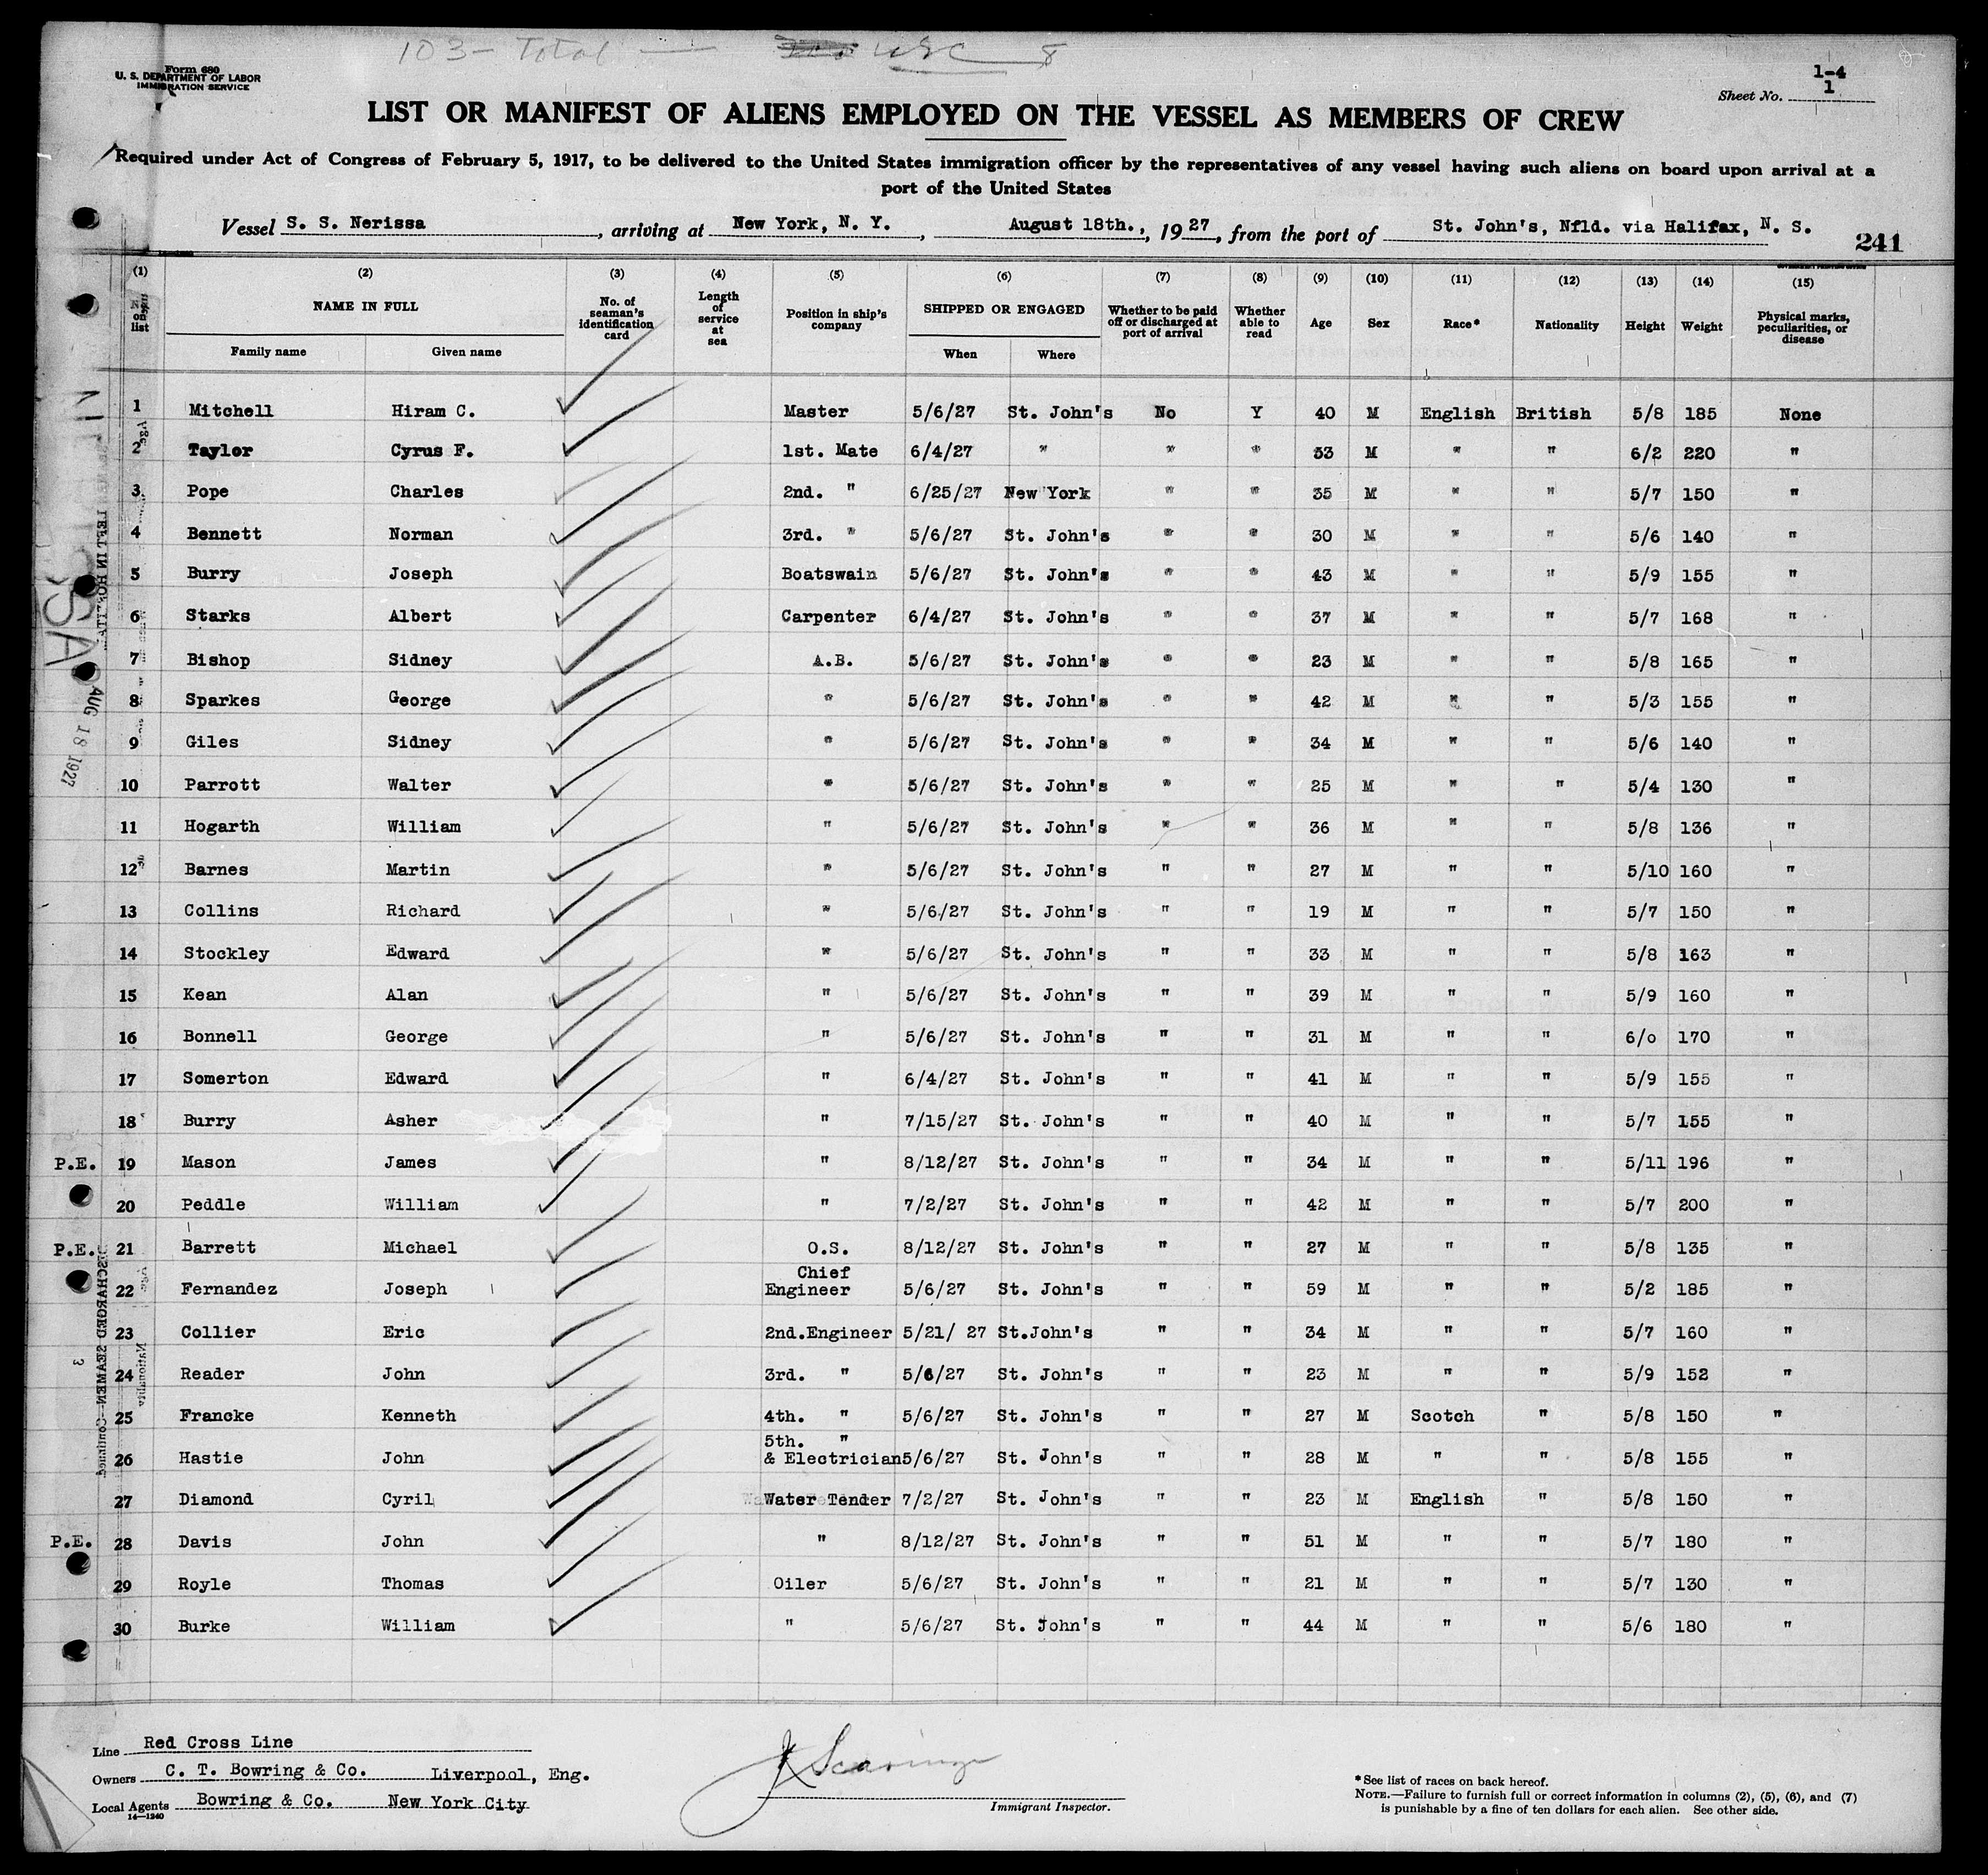 103- Total — USC 8
Form 680
U. S. DEPARTMENT OF LABOR
IMMIGRATION SERVICE
1-4
Sheet No. 1
LIST OR MANIFEST OF ALIENS EMPLOYED ON THE VESSEL AS MEMBERS OF CREW
Required under Act of Congress of February 5, 1917, to be delivered to the United States immigration officer by the representatives of any vessel having such aliens on board upon arrival at a
port of the United States
Vessel S. S. Nerissa, arriving at New York, N. Y., August 18th., 1927, from the port of St. John's, Nfld. via Halifax, N. S.
241
(1) (2) (3) (4) (5) (6) (7) (8) (9) (10) (11) (12) (13) (14) (15)
No. on list NAME IN FULL Family name Given name No. of seaman's identification card Length of service at sea Position in ship's company SHIPPED OR ENGAGED When Where Whether to be paid off or discharged at port of arrival Whether able to read Age Sex Race* Nationality Height Weight Physical marks, peculiarities, or disease
1 Mitchell Hiram C. Master 5/6/27 St. John's No Y 40 M English British 5/8 185 None
2 Taylor Cyrus F. 1st. Mate 6/4/27 " " " 33 M " " 6/2 220 "
3 Pope Charles 2nd. " 6/25/27 New York " " 35 M " " 5/7 150 "
4 Bennett Norman 3rd. " 5/6/27 St. John's " " 30 M " " 5/6 140 "
5 Burry Joseph Boatswain 5/6/27 St. John's " " 43 M " " 5/9 155 "
6 Starks Albert Carpenter 6/4/27 St. John's " " 37 M " " 5/7 168 "
7 Bishop Sidney A.B. 5/6/27 St. John's " " 23 M " " 5/8 165 "
8 Sparkes George " 5/6/27 St. John's " " 42 M " " 5/3 155 "
9 Giles Sidney " 5/6/27 St. John's " " 34 M " " 5/6 140 "
10 Parrott Walter " 5/6/27 St. John's " " 25 M " " 5/4 130 "
11 Hogarth William " 5/6/27 St. John's " " 36 M " " 5/8 136 "
12 Barnes Martin " 5/6/27 St. John's " " 27 M " " 5/10 160 "
13 Collins Richard " 5/6/27 St. John's " " 19 M " " 5/7 150 "
14 Stockley Edward " 5/6/27 St. John's " " 33 M " " 5/8 163 "
15 Kean Alan " 5/6/27 St. John's " " 39 M " " 5/9 160 "
16 Bonnell George " 5/6/27 St. John's " " 31 M " " 6/o 170 "
17 Somerton Edward " 6/4/27 St. John's " " 41 M " " 5/9 155 "
18 Burry Asher " 7/15/27 St. John's " " 40 M " " 5/7 155 "
P.E. 19 Mason James " 8/12/27 St. John's " " 34 M " " 5/11 196 "
20 Peddle William " 7/2/27 St. John's " " 42 M " " 5/7 200 "
P.E. 21 Barrett Michael O.S. 8/12/27 St. John's " " 27 M " " 5/8 135 "
22 Fernandez Joseph Chief Engineer 5/6/27 St. John's " " 59 M " " 5/2 185 "
23 Collier Eric 2nd.Engineer 5/21/ 27 St.John's " " 34 M " " 5/7 160 "
24 Reader John 3rd. " 5/6/27 St. John's " " 23 M " " 5/9 152 "
25 Francke Kenneth 4th. " 5/6/27 St. John's " " 27 M Scotch " 5/8 150 "
26 Hastie John 5th. " & Electrician 5/6/27 St. John's " " 28 M " " 5/8 155 "
27 Diamond Cyril Water Tender 7/2/27 St. John's " " 23 M English " 5/8 150 "
P.E. 28 Davis John " 8/12/27 St. John's " " 51 M " " 5/7 180 "
29 Royle Thomas Oiler 5/6/27 St. John's " " 21 M " " 5/7 130 "
30 Burke William " 5/6/27 St. John's " " 44 M " " 5/6 180 "
AUG 18 1927
DISCHARGED SEAMEN—Continued
Nationality
3
Line Red Cross Line
Owners C. T. Bowring & Co. Liverpool, Eng.
Local Agents Bowring & Co. New York City
14—1240
Immigrant Inspector.
*See list of races on back hereof.
NOTE.—Failure to furnish full or correct information in columns (2), (5), (6), and (7)
is punishable by a fine of ten dollars for each alien. See other side.